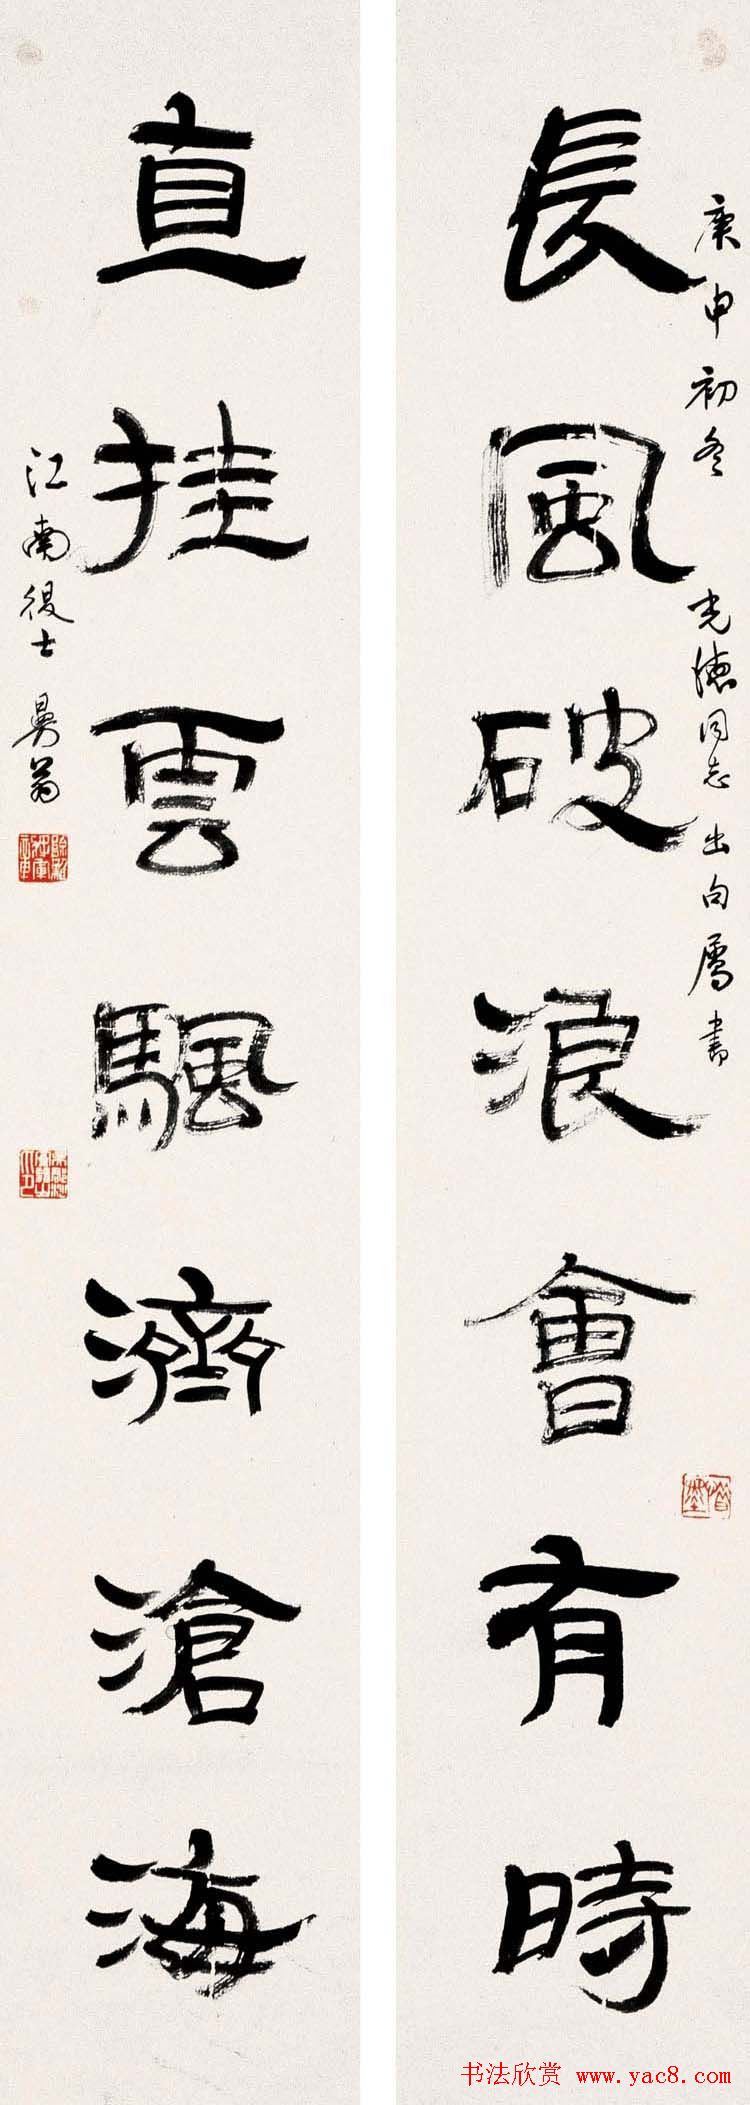 長風破浪會有時
庚申初冬 光德同志 出句屬書
直挂雲颿濟滄海
江南後士 曼翁
书法欣赏 www.yac8.com